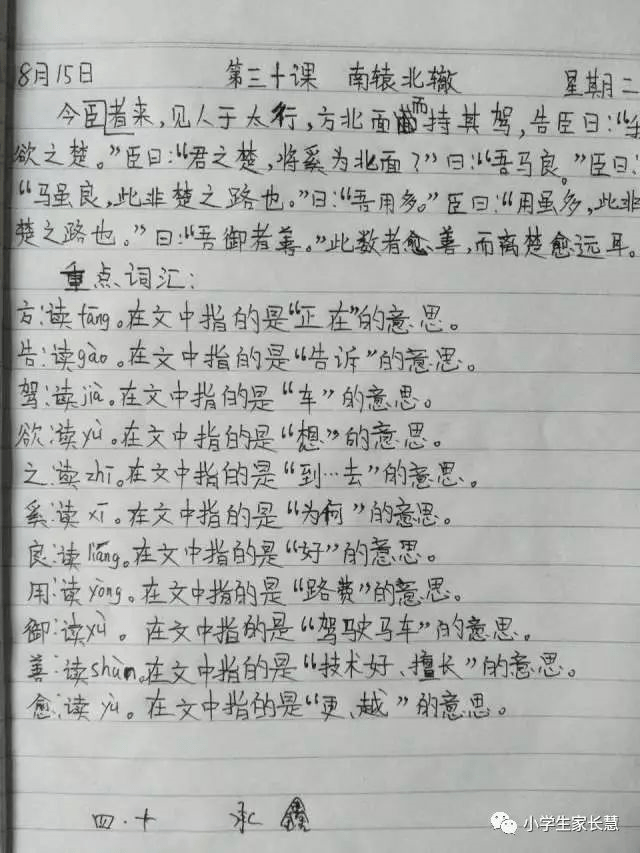 8月15日 第三十课 南辕北辙 星期二
今臣者来,见人于太行,方北面而持其驾,告臣曰:“
欲之楚。”臣曰:“君之楚,将奚为北面?”曰:“吾马良。”臣曰:
“马虽良,此非楚之路也。”曰:“吾用多。”臣曰:“用虽多,此非
楚之路也。”曰:“吾御者善。”此数者愈善,而离楚愈远耳。
重点词汇:
方:读fāng。在文中指的是“正在”的意思。
告:读gào。在文中指的是“告诉”的意思。
驾:读jià。在文中指的是“车”的意思。
欲:读yù。在文中指的是“想”的意思。
之:读zhī。在文中指的是“到…去”的意思。
奚:读xī。在文中指的是“为何”的意思。
良:读liáng。在文中指的是“好”的意思。
用:读yòng。在文中指的是“路费”的意思。
御:读yù。在文中指的是“驾驶马车”的意思。
善:读shàn。在文中指的是“技术好、擅长”的意思。
愈:读yù。在文中指的是“更、越”的意思。
四·十 承鑫
小学生家长慧